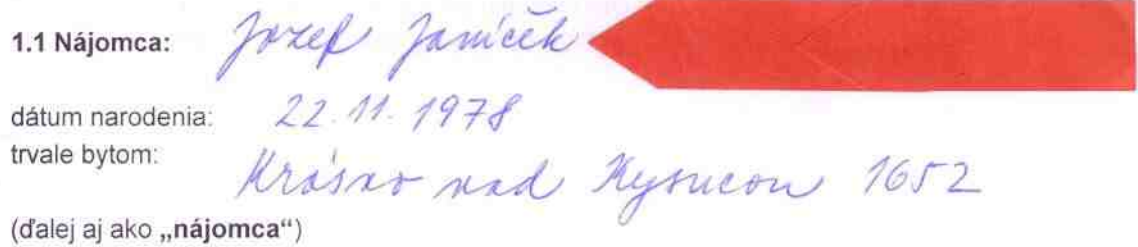 1.1 Nájomca: Jozef Janíček
dátum narodenia: 22.11.1978
trvale bytom: Krásno nad Kysucou 1652
(ďalej aj ako „nájomca“)